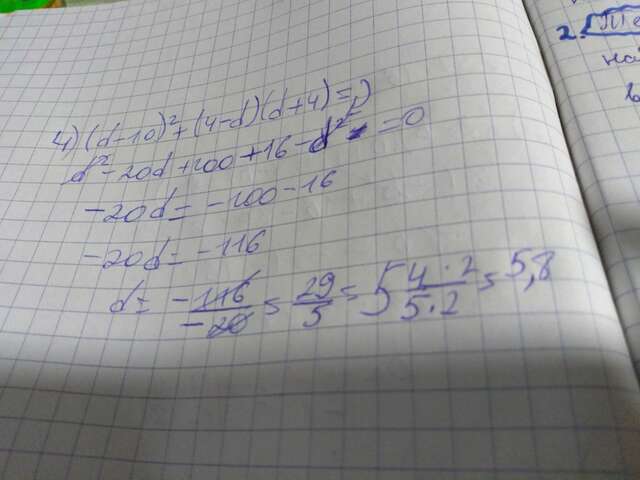 4) (d-10)² + (4-d)(d+4) = 0
d² - 20d + 100 + 16 - d² = 0
-20d = -100 - 16
-20d = -116
d = -116/-20 = 29/5 = 5 4·2/5·2 = 5,8
2.